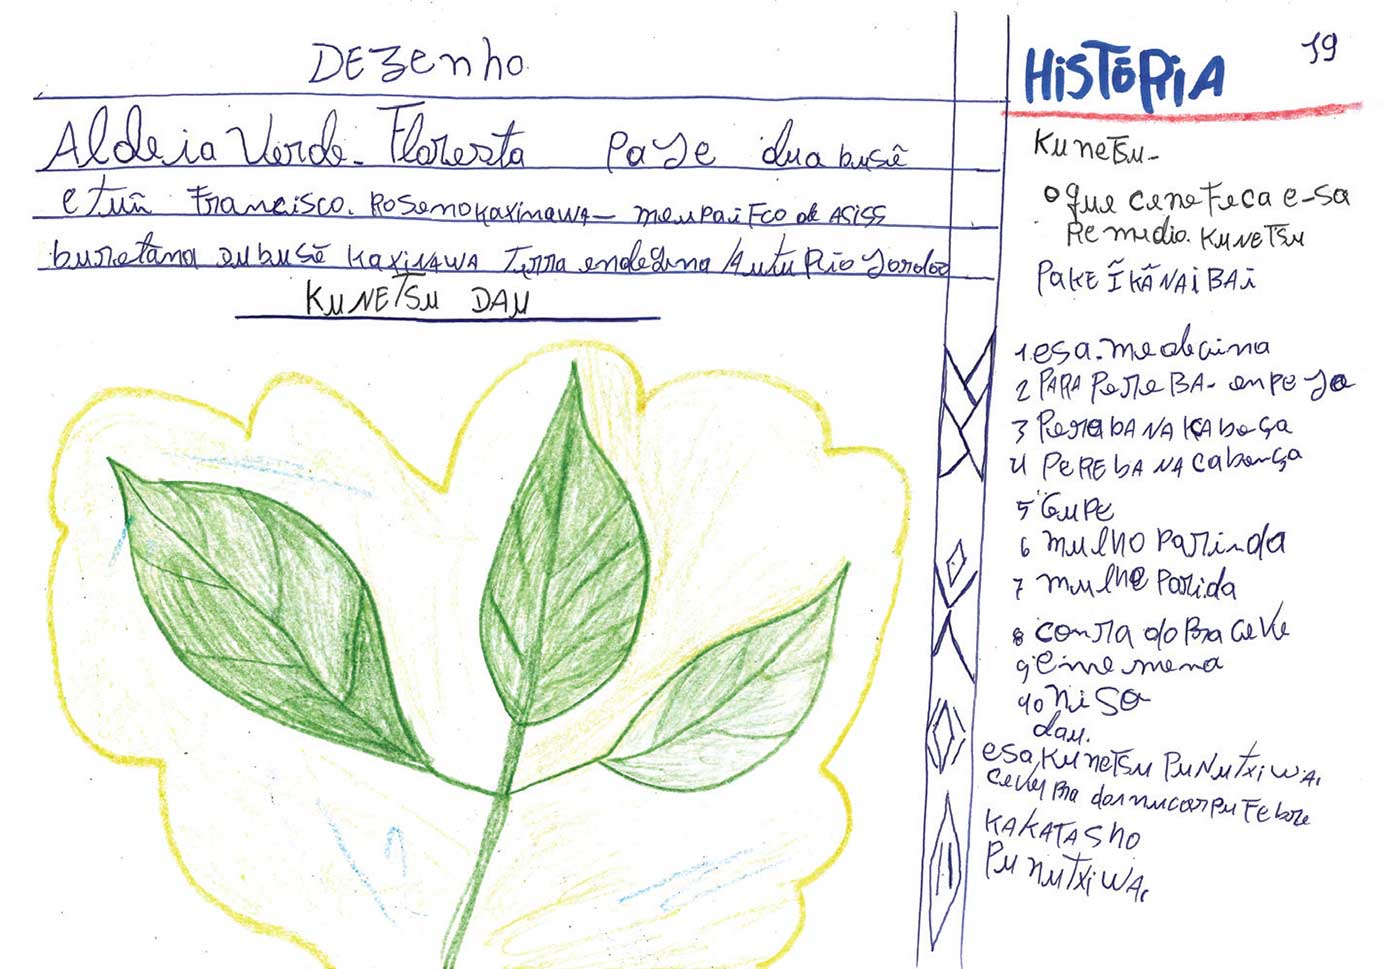 DEzenho
Aldeia Verde. Floresta Paje dua busẽ
e tuĩ Francisco. Rosenokaxinawa- meupai Fco de ASISS
buretãna dubusẽ KAXINAWA Terra endegina /Autu Rio Jordão
KUNETSU DAU
19
HiSTÓRiA
KuneTsu-
o que ceneFeca e-sa
Remedio. KUNETSU
PAKE ĨKÃNAiBAi
1.esa.medecina
2 PARA PereBA- enpeJe
3 PerebA NA KABeça
4 PEREbA NA Cabença
5 GRIPE
6 mulho Parinda
7 mulhe Parida
8 conra do Pra ceve
9 eme mena
10 Niso
dau.
esa, KuneTsu PuNuTxiWA,
ceve Pra dornucorpu Febre
KAKATASHO
PunuTxiWA,